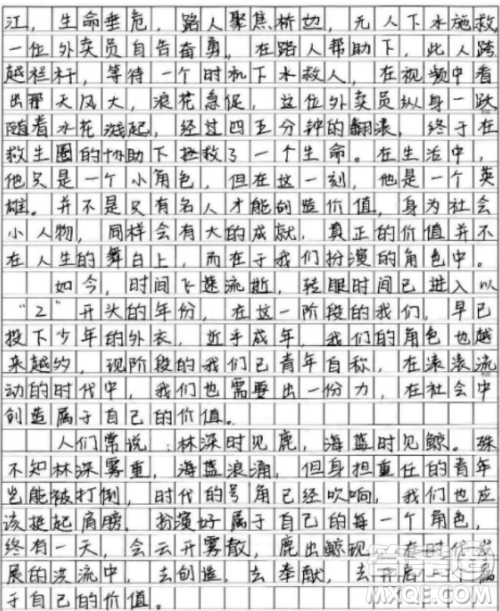 江，生命垂危，路人聚焦桥边，无人下水施救，
一位外卖员自告奋勇，在路人帮助下，此人跨
越栏杆，等待一个时机下水救人，在视频中看
出那天风大，浪花急促，这位外卖员纵身一跃
随着水花溅起，经过四五分钟的翻滚，终于在
救生圈的协助下拯救了一个生命。在生活中，
他只是一个小角色，但在这一刻，他是一个英
雄。并不是只有名人才能创造价值，身为社会
小人物，同样会有大的成就，真正的价值并不
在人生的舞台上，而在于我们扮演的角色中。
如今，时间飞速流逝，转眼时间已进入以
“2”开头的年份，在这一阶段的我们，早已
投下少年的外衣，近乎成年，我们的角色也越
来越多，现阶段的我们已青年自称，在滚滚流
动的时代中，我们也需要出一份力，在社会中
创造属于自己的价值。
人们常说：林深时见鹿，海蓝时见鲸。殊
不知林深雾重，海蓝浪涌，但身担重任的青年
岂能被打倒，时代的号角已经吹响，我们也应
该挺起肩膀，扮演好属于自己的每一个角色，
终有一天，会云开雾散，鹿出鲸现，在时代发
展的洪流中，去创造，去奉献，去开启一个属
于自己的价值。